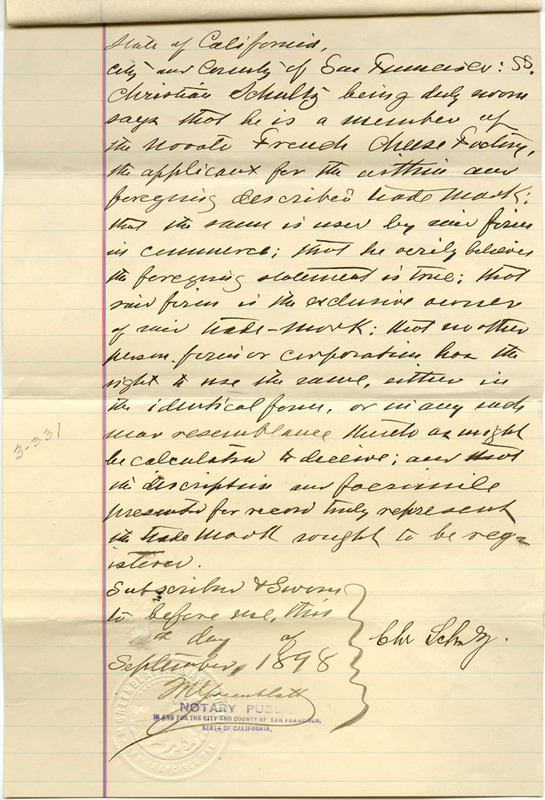 State of California,
City and County of San Francisco: SS.
Christian Schultz being duly sworn
says that he is a member of
the Novato French Cheese Factory,
the applicant for the within and
foregoing described trade mark;
that the same is used by said firm
in commerce; that he verily believes
the foregoing statement is true; that
said firm is the exclusive owner
of said trade-mark; that no other
person, firm or corporation has the
right to use the same, either in
the identical form, or in any such
near resemblance thereto as might
be calculated to deceive; and that
the description and facsimile
presented for record truly represent
the trade mark sought to be reg-
istered.
3-331
Subscribed & Sworn
to before me, this
th day of
September, 1898
Chr Schultz.
NOTARY PUBL
IN AND FOR THE CITY AND COUNTY OF SAN FRANCISCO,
STATE OF CALIFORNIA.